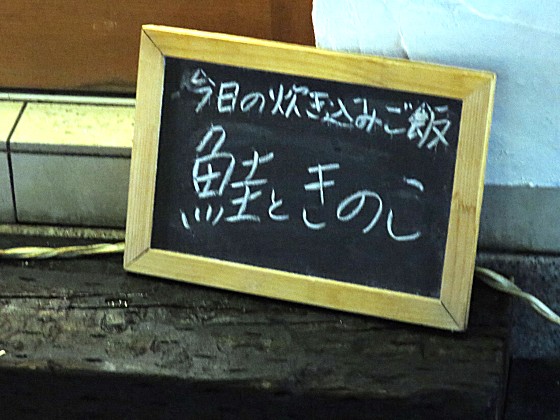 今日の炊き込みご飯
鮭ときのこ